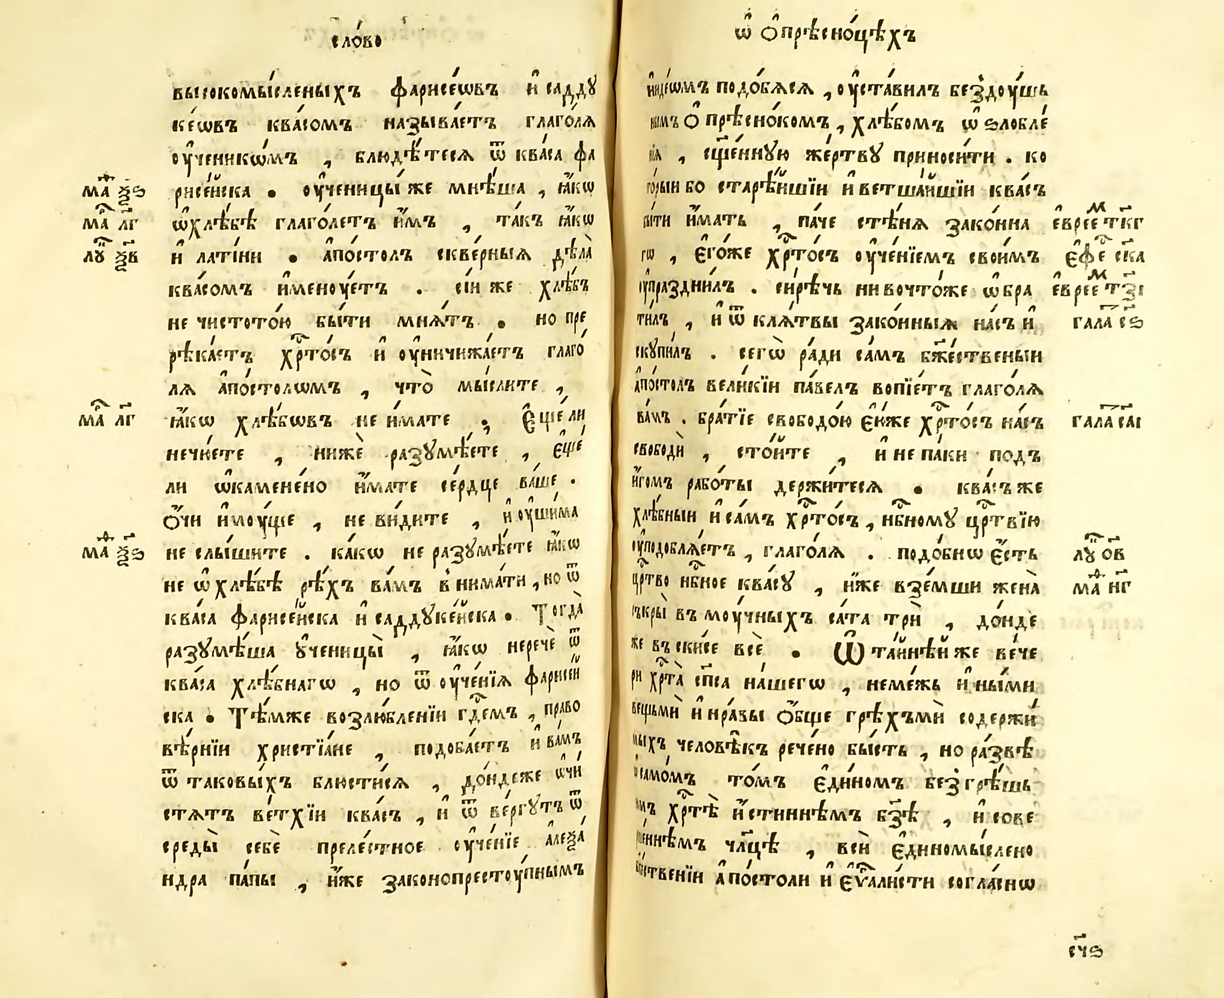 сло́во
высокомы́сленыхъ фарисе́ѡвъ и҆ садду
ке́ѡвъ ква́сомъ называ́етъ глаго́лѧ
ᲂу҆ченикѡ́мъ , блюдѣ́тесѧ ѿ ква́са фа
рисе́йска . ᲂу҆ченицы́ же мнѣ́ша , ꙗ҆́кѡ
ѡ҆хлѣ́бѣ глаго́летъ и҆̀мъ , та́къ ꙗ҆́кѡ
и҆ лати́ни . а҆по́столъ скве́рныѧ дѣла̀
ква́сомъ и҆менꙋ́етъ . сі́и же хлѣ́бъ
не чистото́ю бы́ти мнѧ́тъ . но пре
рѣка́етъ хрⷭ҇то́съ и҆ ᲂу҆ничижа́етъ глаго́
лѧ а҆по́столѡмъ , что̀ мы́слите ,
ꙗ҆́кѡ хлѣ́бѡвъ не и҆́мате . Є҆ще́ ли
нечꙋ́ете , нижѐ разꙋмѣ́ете , є҆ще́
ли ѡ҆камене́но и҆́мате се́рдце ва́ше .
Ѻ҆́чи и҆мꙋ́ще , не ви́дите , и҆ ᲂу҆шима
не слы́шите . ка́кѡ не разꙋмѣ́ете ꙗ҆́кѡ
не ѡ҆ хлѣ́бѣ рѣ́хъ ва́мъ внима́ти , но ѿ
ква́са фарисе́йска и҆ саддꙋке́йска . Тогда̀
разꙋмѣ́ша ᲂу҆ченицы̀ , ꙗ҆́кѡ неречѐ ѿ
ква́са хлѣ́бнагѡ , но ѿ ᲂу҆че́нїѧ фарисе́й
ска . Тѣ́мже возлю́бленїи гдⷭ҇емъ , право
вѣ́рнїи христїа́не , подоба́етъ и҆ ва́мъ
ѿ таковы́хъ блюсти́сѧ , до́ндеже ѡ҆чи
стѧ́тъ ве́тхїи ква́съ , и҆ ѿ ве́ргꙋтъ ѿ
среды̀ себѐ преле́стное ᲂу҆че́нїе а҆леѯа́
ндра па́пы , и҆́же законопрестꙋ́пнымъ
маⷴ҇ ѯ҃ѕ
маⷬ҇ л҃г
лꙋⷦ҇ ѯ҃в
маⷬ҇ л҃г
маⷴ҇ ѯ҃ѕ
ѡ҆ Ѻ҆прѣсно́цѣхъ
и҆ꙋде́ѡмъ подо́бѧсѧ , ᲂу҆ста́вилъ безд̾ꙋ́шь
нымъ Ѻ҆прѣсно́комъ , хлѣ́бомъ ѡ҆ѕлобле́
нїѧ , сщ҃е́ннꙋю же́ртвꙋ приноси́ти . ко
то́рыи бо старѣ́йшїи и҆ ветша́йшїи ква́съ
бы́ти и҆́мать , па́че стѣ́нѧ зако́нна
гѡ , є҆го́же хрⷭ҇то́съ ᲂу҆че́нїемъ свои́мъ
ᲂу҆праздни́лъ . си́рѣчь нивочто́же ѡ҆бра
ти́лъ , и҆ ѿ клѧ́твы зако́нныѧ на́съ и
скꙋпи́лъ . сегѡ̀ ра́ди са́мъ бж҃е́ственыи
а҆по́столъ вели́кїи па́велъ вопїе́тъ глаго́лѧ
ва́мъ . бра́тїе свободо́ю є҆́юже хрⷭ҇то́съ на́съ
свободѝ , сто́йте , и҆ не па́ки подъ
и҆́гомъ рабо́ты держи́тесѧ . ква́съ же
хлѣ́бныи и҆ са́мъ хрⷭ҇то́съ , нб҃номꙋ црⷭ҇твїю
ᲂу҆подоблѧ́етъ , глаго́лѧ . подо́бнѡ є҆́сть
црⷭ҇тво нб҃ное ква́сꙋ , и҆́же взе́мши жена̀
съкры̀ въ мꙋ́чныхъ са́та трѝ , до́нде
же въски́се всѐ . Ѽ та́йнѣй же ве́че
ри хрⷭ҇та̀ сп҃са на́шегѡ , не ме́жъ и҆ны́ми
вещьмѝ и҆ нра́вы Ѻ҆́бще грѣ́хъмѝ содержи́
мыхъ человѣ́къ рече́но бы́сть , но ра́звѣ
в самѡ́мъ то́мъ є҆ди́номъ без̾грѣ́шь
нѣмъ хрⷭ҇тѣ̀ и҆́стиннѣмъ бз҃ѣ , и҆ сове
ше́ннѣмъ чл҃цѣ , всѝ є҆диномы́слено
бж҃ственїи а҆по́столи и҆ є҆ѵⷢ҇али́сти согла́снѡ
є҆вреⷨ҇ є҃ тк҃г
є҆фе҃ ск҃а
є҆вреⷨ҇ є҃ тз҃і
гала с҃ѕ
гала са҃і
лꙋⷦ҇ ѻ҃в
маⷴ҇ н҃г
сч҃ѕ